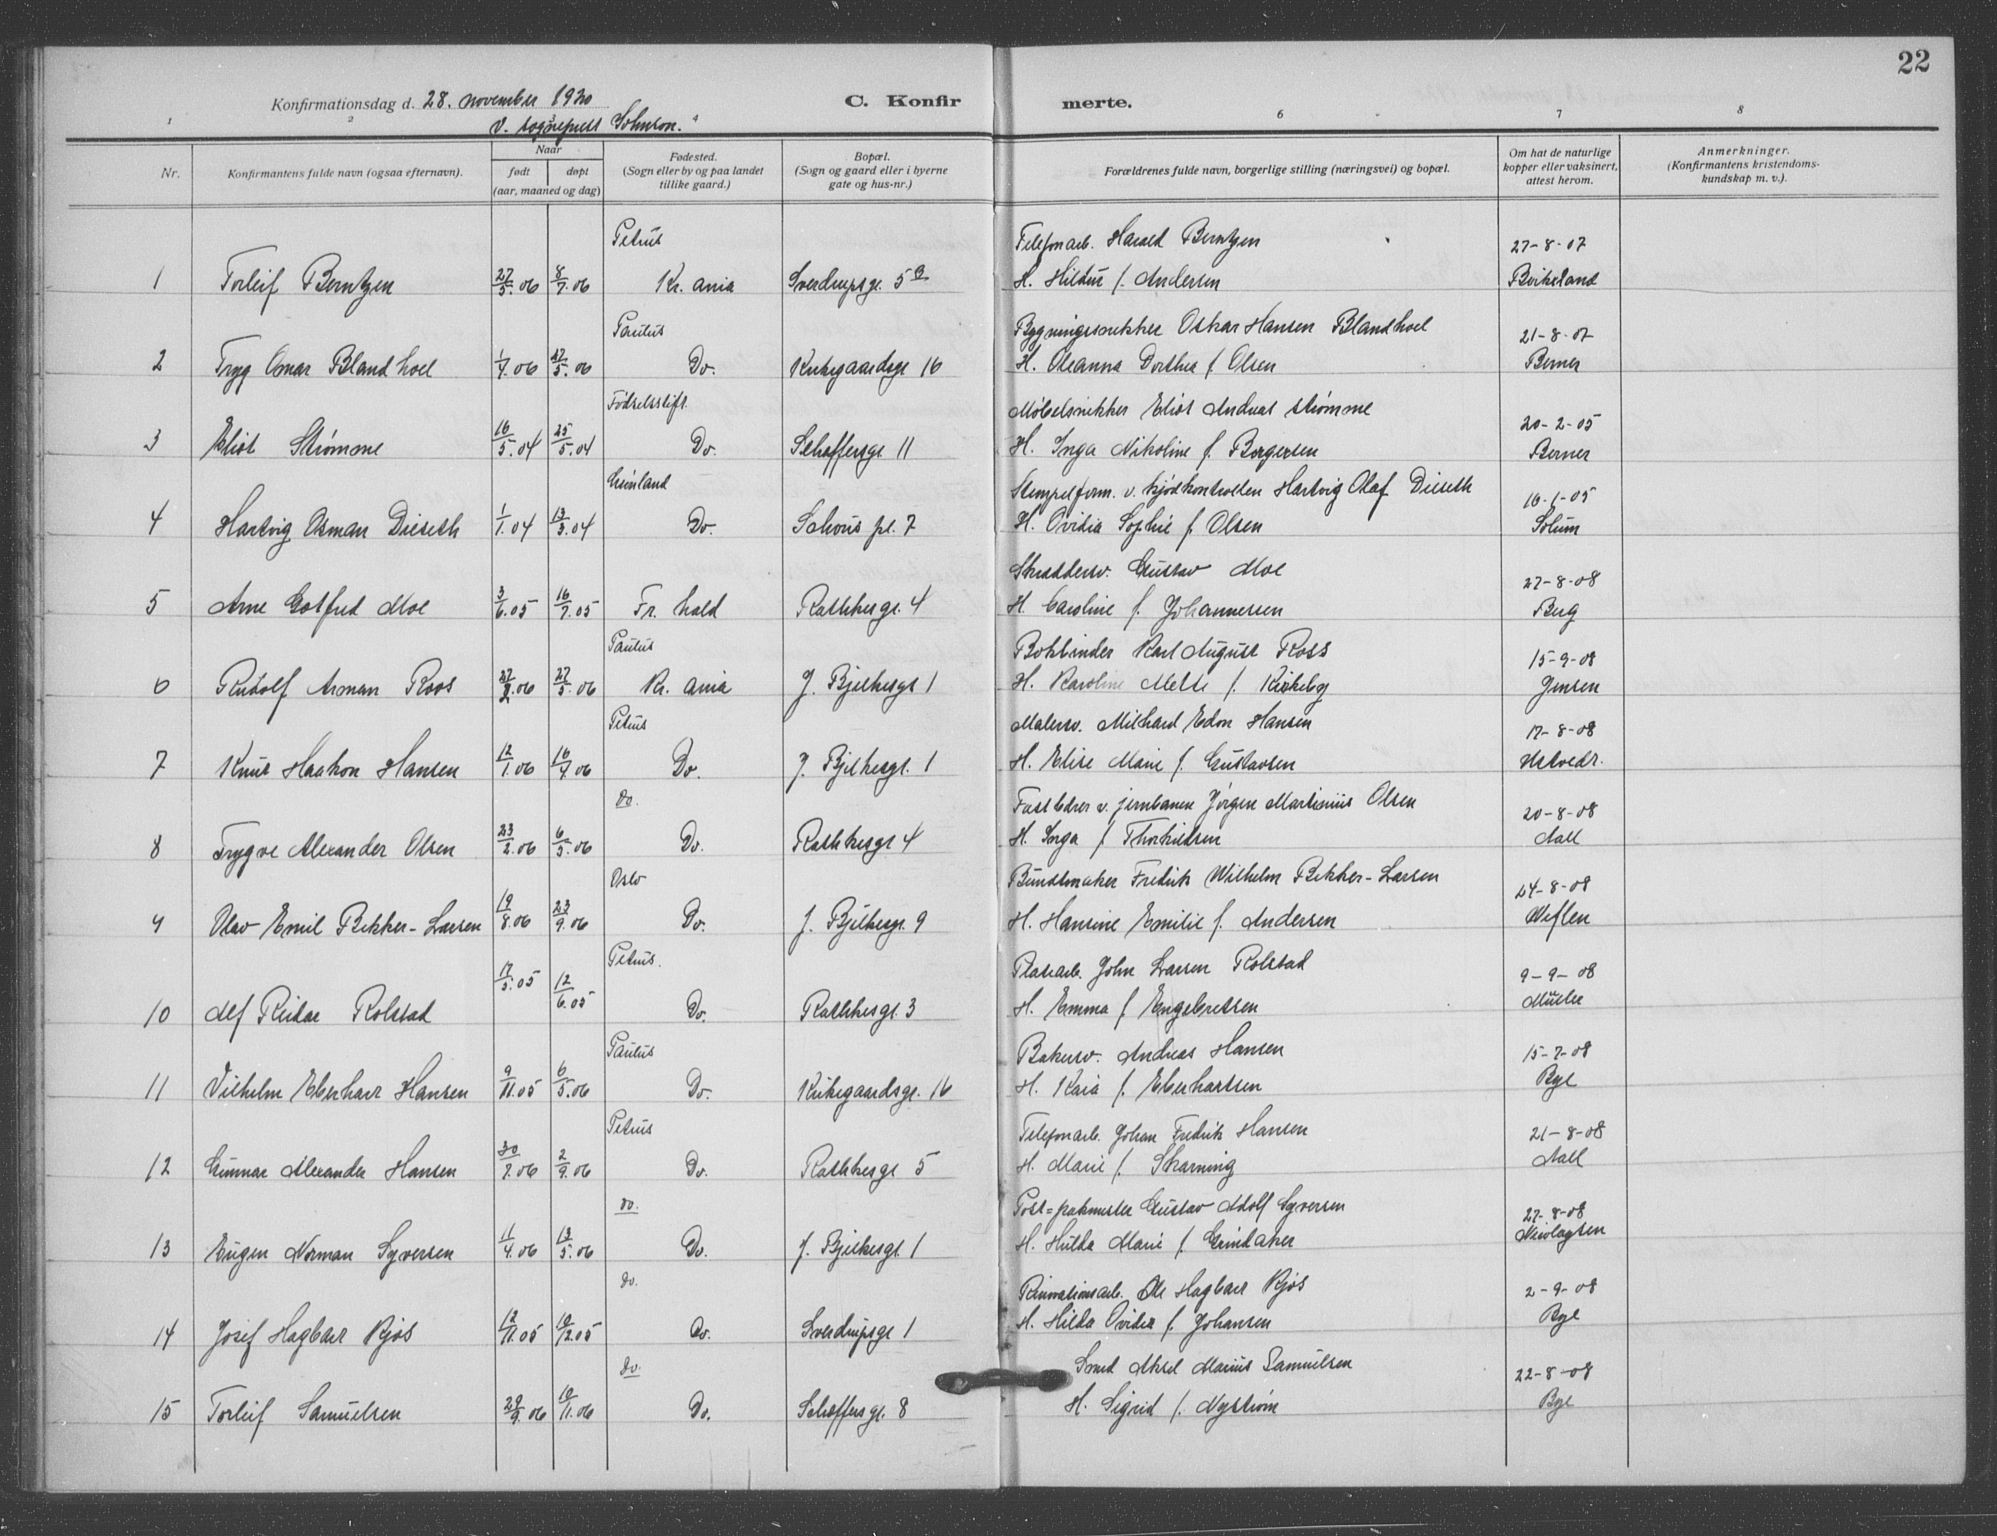 22
Konfirmationsdag d. 28. november 1920 C. Konfirmerte.
v. sogneprest Johnson.
1 2 6 7 8
Nr. Konfirmantens fulde navn (ogsaa efternavn). Naar født døpt (aar, maaned og dag) Fødested. (Sogn eller by og paa landet tillike gaard.) Bopæl. (Sogn og gaard eller i byerne gate og hus-nr.) Forældrenes fulde navn, borgerlige stilling (næringsvei) og bopæl. Om hat de naturlige kopper eller vaksinert, attest herom. Anmerkninger. (Konfirmantens kristendoms-kundskap m. v.).
Petrus Telefonarb. Harald Berntzen 27-8-07
1 Torleif Berntzen 27/5.06 8/7.06 Kr.ania Sverdrupsgt. 5 B H. Hildur f. Andersen Birkeland
Paulus Bygningssnekker Oskar Hansen Blandhoel 21-8-07
2 Tryg Omar Blandhoel 1/4.06 27/5.06 Do. Kirkegaardsgt 16 H. Oleanna Dorthea f. Olsen Berner
Fødselsstift. Møbelsnekker Eliot Andreas Strømme 20-2-05
3 Eliot Strømme 16/5.04 25/5.04 Do. Schoffersgt 11 H. Inga Nikoline f. Borgersen Berner
Grønland Stempelform. v. kjødkontrollen Hartvig Olaf Dieseth 16-1-05
4 Hartvig Osman Dieseth 1/1.04 13/3.04 Do. Schous pl. 7 H. Ovidia Sophie f. Olsen Solum
Skræddersv. Gustav Moe 27-8-08
5 Arne Gotfred Moe 3/6.05 16/7.05 Fr.hald Rathkesgt. 4 H. Caroline f. Johannessen Berg
Paulus Bokbinder Karl August Ross 15-9-08
6 Rudolf Arman Roos 27/2.06 27/5.06 Kr.ania J. Bjelkesgt 1 H. Karoline Mette f. Kirkeby Jensen
Petrus Malersv. Milhard Edon Hansen 17-8-08
7 Knut Haakon Hansen 12/1.06 16/4.06 Do. J. Bjelkesgt. 1 H. Elise Marie f. Gustavsen Hstvedt.
do. Fastbdrer v. jernbanen Jørgen Martinius Olsen 20-8-08
8 Trygve Alexander Olsen 23/2.06 6/5.06 Do. Rathkesgt 4 H. Inga f. Thorkildsen Aall
Oslo Buntmaker Fredrik Wilhelm Bekker-Larsen 24-8-08
9 Olav Emil Bekker-Larsen 19/8.06 23/9.06 Do. J. Bjelkesgt. 9 H. Hansine Emilie f. Andersen Weflen
Petrus. Platearb. John Larsen Rolstad 9-9-08
10 Alf Reidar Rolstad 17/5.05 12/6.05 Do. Rathkesgt. 3 H. Emma f. Engebretsen Müller
Paulus Bakersv. Andreas Hansen 15-7-08
11 Vilhelm Eberhart Hansen 9/11.05 6/5.06 Do. Kirkegaardsgt. 16 H. Kaia f. Eberhartsen Bye
Petrus Telefonarb. Johan Fredrik Hansen 21-8-08
12 Gunnar Alexander Hansen 30/7.06 2/9.06 Do. Rathkesgt 5 H. Marie f. Skarning Aall
do. Post=pakmester Gustav Adolf Syversen 27-8-08
13 Eugen Norman Syversen 11/4.06 13/5.06 Do. J. Bjelkesgt. 1 H. Hulda Marie f. Grindaker Nicolaysen
do. Renovationsarb. Ole Hagbart Kjos 2-9-08
14 Josef Hagbart Kjos 12/11.05 10/12.05 Do. Sverdrupsgt 1 H. Hilda Ovidia f. Johansen Bye
do. Smed Aksel Marius Samuelsen 22-8-08
15 Torleif Samuelsen 29/9.06 10/11.06 Do. Schoffersgt. 8 H. Sigrid f. Nystrøm Bye